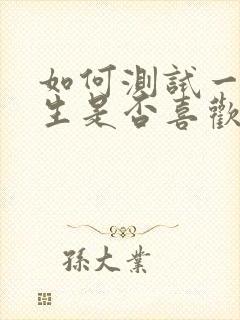 如何測試一
生是否喜歡
孫大業